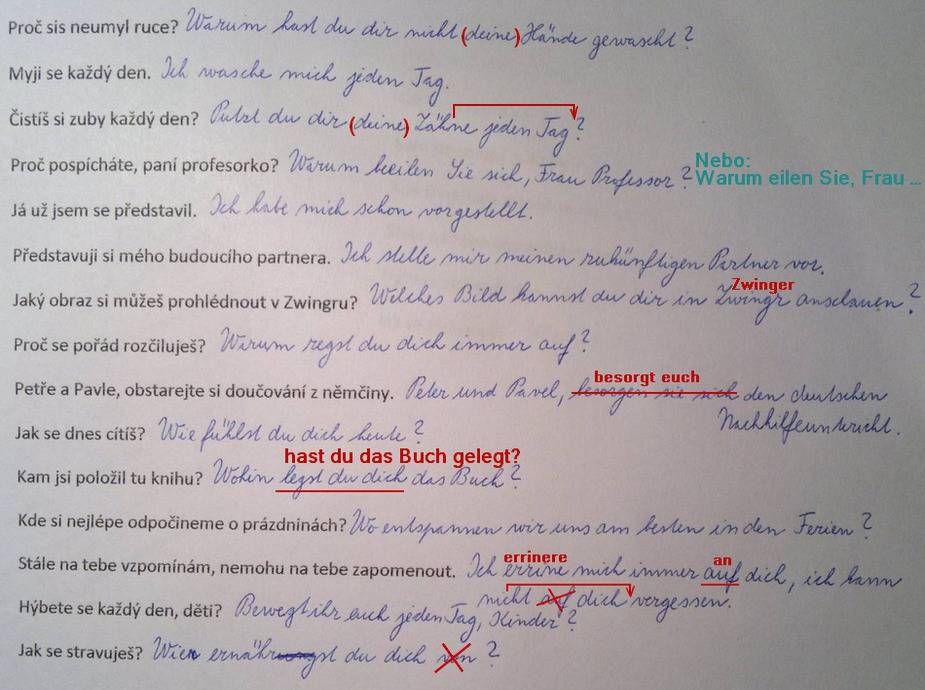 Proč sis neumyl ruce? Warum hast du dir nicht (deine) Hände gewascht?
Myji se každý den. Ich wasche mich jeden Tag.
Čistíš si zuby každý den? Putzt du dir (deine) Zähne jeden Tag?
Nebo:
Proč pospícháte, paní profesorko? Warum beeilen Sie sich, Frau Professor? Warum eilen Sie, Frau ...
Já už jsem se představil. Ich habe mich schon vorgestellt.
Představuji si mého budoucího partnera. Ich stelle mir meinen zukünftigen Partner vor.
Zwinger
Jaký obraz si můžeš prohlédnout v Zwingru? Welches Bild kannst du dir in Zwingr anschauen?
Proč se pořád rozčiluješ? Warum regst du dich immer auf?
besorgt euch
Petře a Pavle, obstarejte si doučování z němčiny. Peter und Pavel, besorgen sie sich den deutschen
Nachhilfeunterricht.
Jak se dnes cítíš? Wie fühlst du dich heute?
hast du das Buch gelegt?
Kam jsi položil tu knihu? Wohin legst du dich das Buch?
Kde si nejlépe odpočineme o prázdninách? Wo entspannen wir uns am besten in den Ferien?
errinere an
Stále na tebe vzpomínám, nemohu na tebe zapomenout. Ich errine mich immer auf dich, ich kann
nicht auf dich vergessen.
Hýbete se každý den, děti? Bewegt ihr euch jeden Tag, Kinder?
Jak se stravuješ? Wie ernährst du dich von?